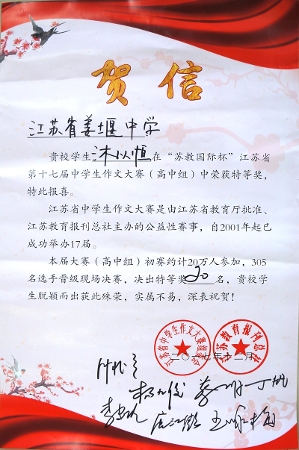 贺信
江苏省姜堰中学
贵校学生沐以恒在“苏教国际杯”江苏省
第十七届中学生作文大赛(高中组)中荣获特等奖,
特此报喜。
江苏省中学生作文大赛是由江苏省教育厅批准、
江苏教育报刊总社主办的公益性赛事,自2001年起已
成功举办17届。
本届大赛(高中组)初赛约计20万人参加,305
名选手晋级现场决赛,决出特等奖30名,贵校学
生脱颖而出获此殊荣,实属不易,深表祝贺!
江苏教育报刊总社
二〇一七年十二月